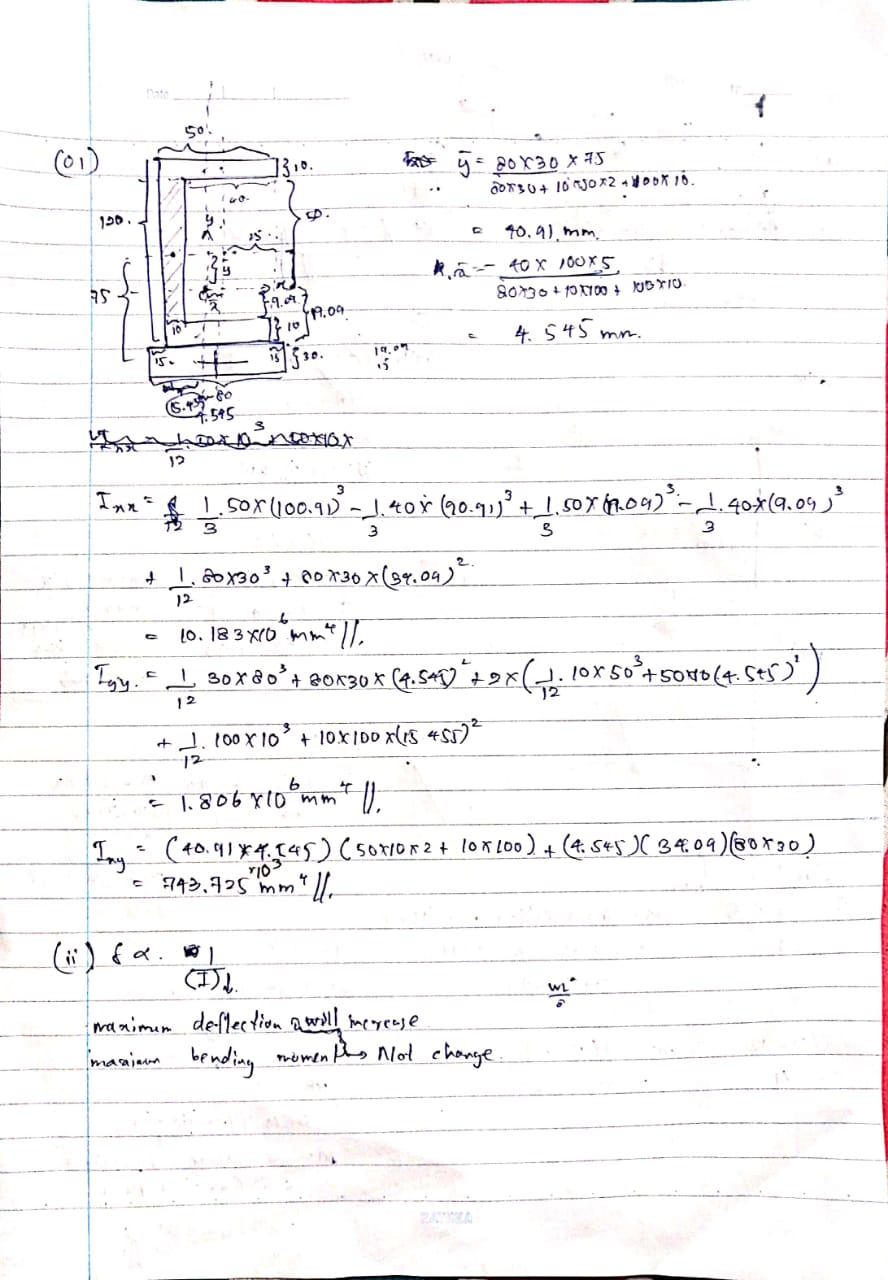 Date
(01)
50.
10.
40
120.
50.
y
15
75
y
x̄
9.09
19.09
10
10
15.
15
30.
19.09
15
80
15.455
4.545
ȳ = 80×30 × 75
80×30 + 10×50×2 + 100×10.
= 40.91 mm.
x̄ = 40 × 100×5
80×30 + 10×100 + 100×10
= 4.545 mm.
Ixx = 1/3 . 50×(100.91)³ - 1/3 . 40×(90.91)³ + 1/3 . 50×(19.09)³ - 1/3 . 40×(9.09)³
+ 1/12 . 80×30³ + 80×30×(34.09)²
= 10.183×10⁶ mm⁴//.
Iyy. = 1/12 30×80³ + 80×30×(4.545)² + 2×(1/12 . 10×50³ + 50×10(4.545)²)
+ 1/12 . 100×10³ + 10×100×(15.455)²
= 1.806×10⁶ mm⁴//.
Ixy = (40.91×4.545)(50×10×2 + 10×100) + (4.545)(34.09)(80×30)
= 743.725 ×10³ mm⁴//.
(ii) f α. 1
(I)↓.
WL²
8
maximum deflection will increase
maximum bending moment → Not change.
RATHNA